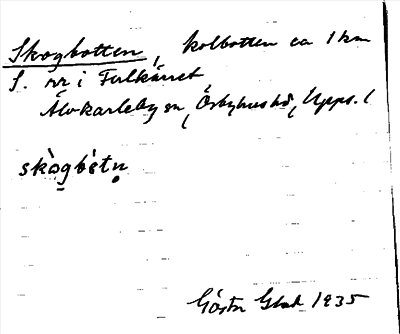 Skogbotten, kolbotten ca 1 km
S. nr i Fulkärret
Älvkarleby sn, Örbyhus hd, Upps. l
skògbòtn̥
Gösta 1935